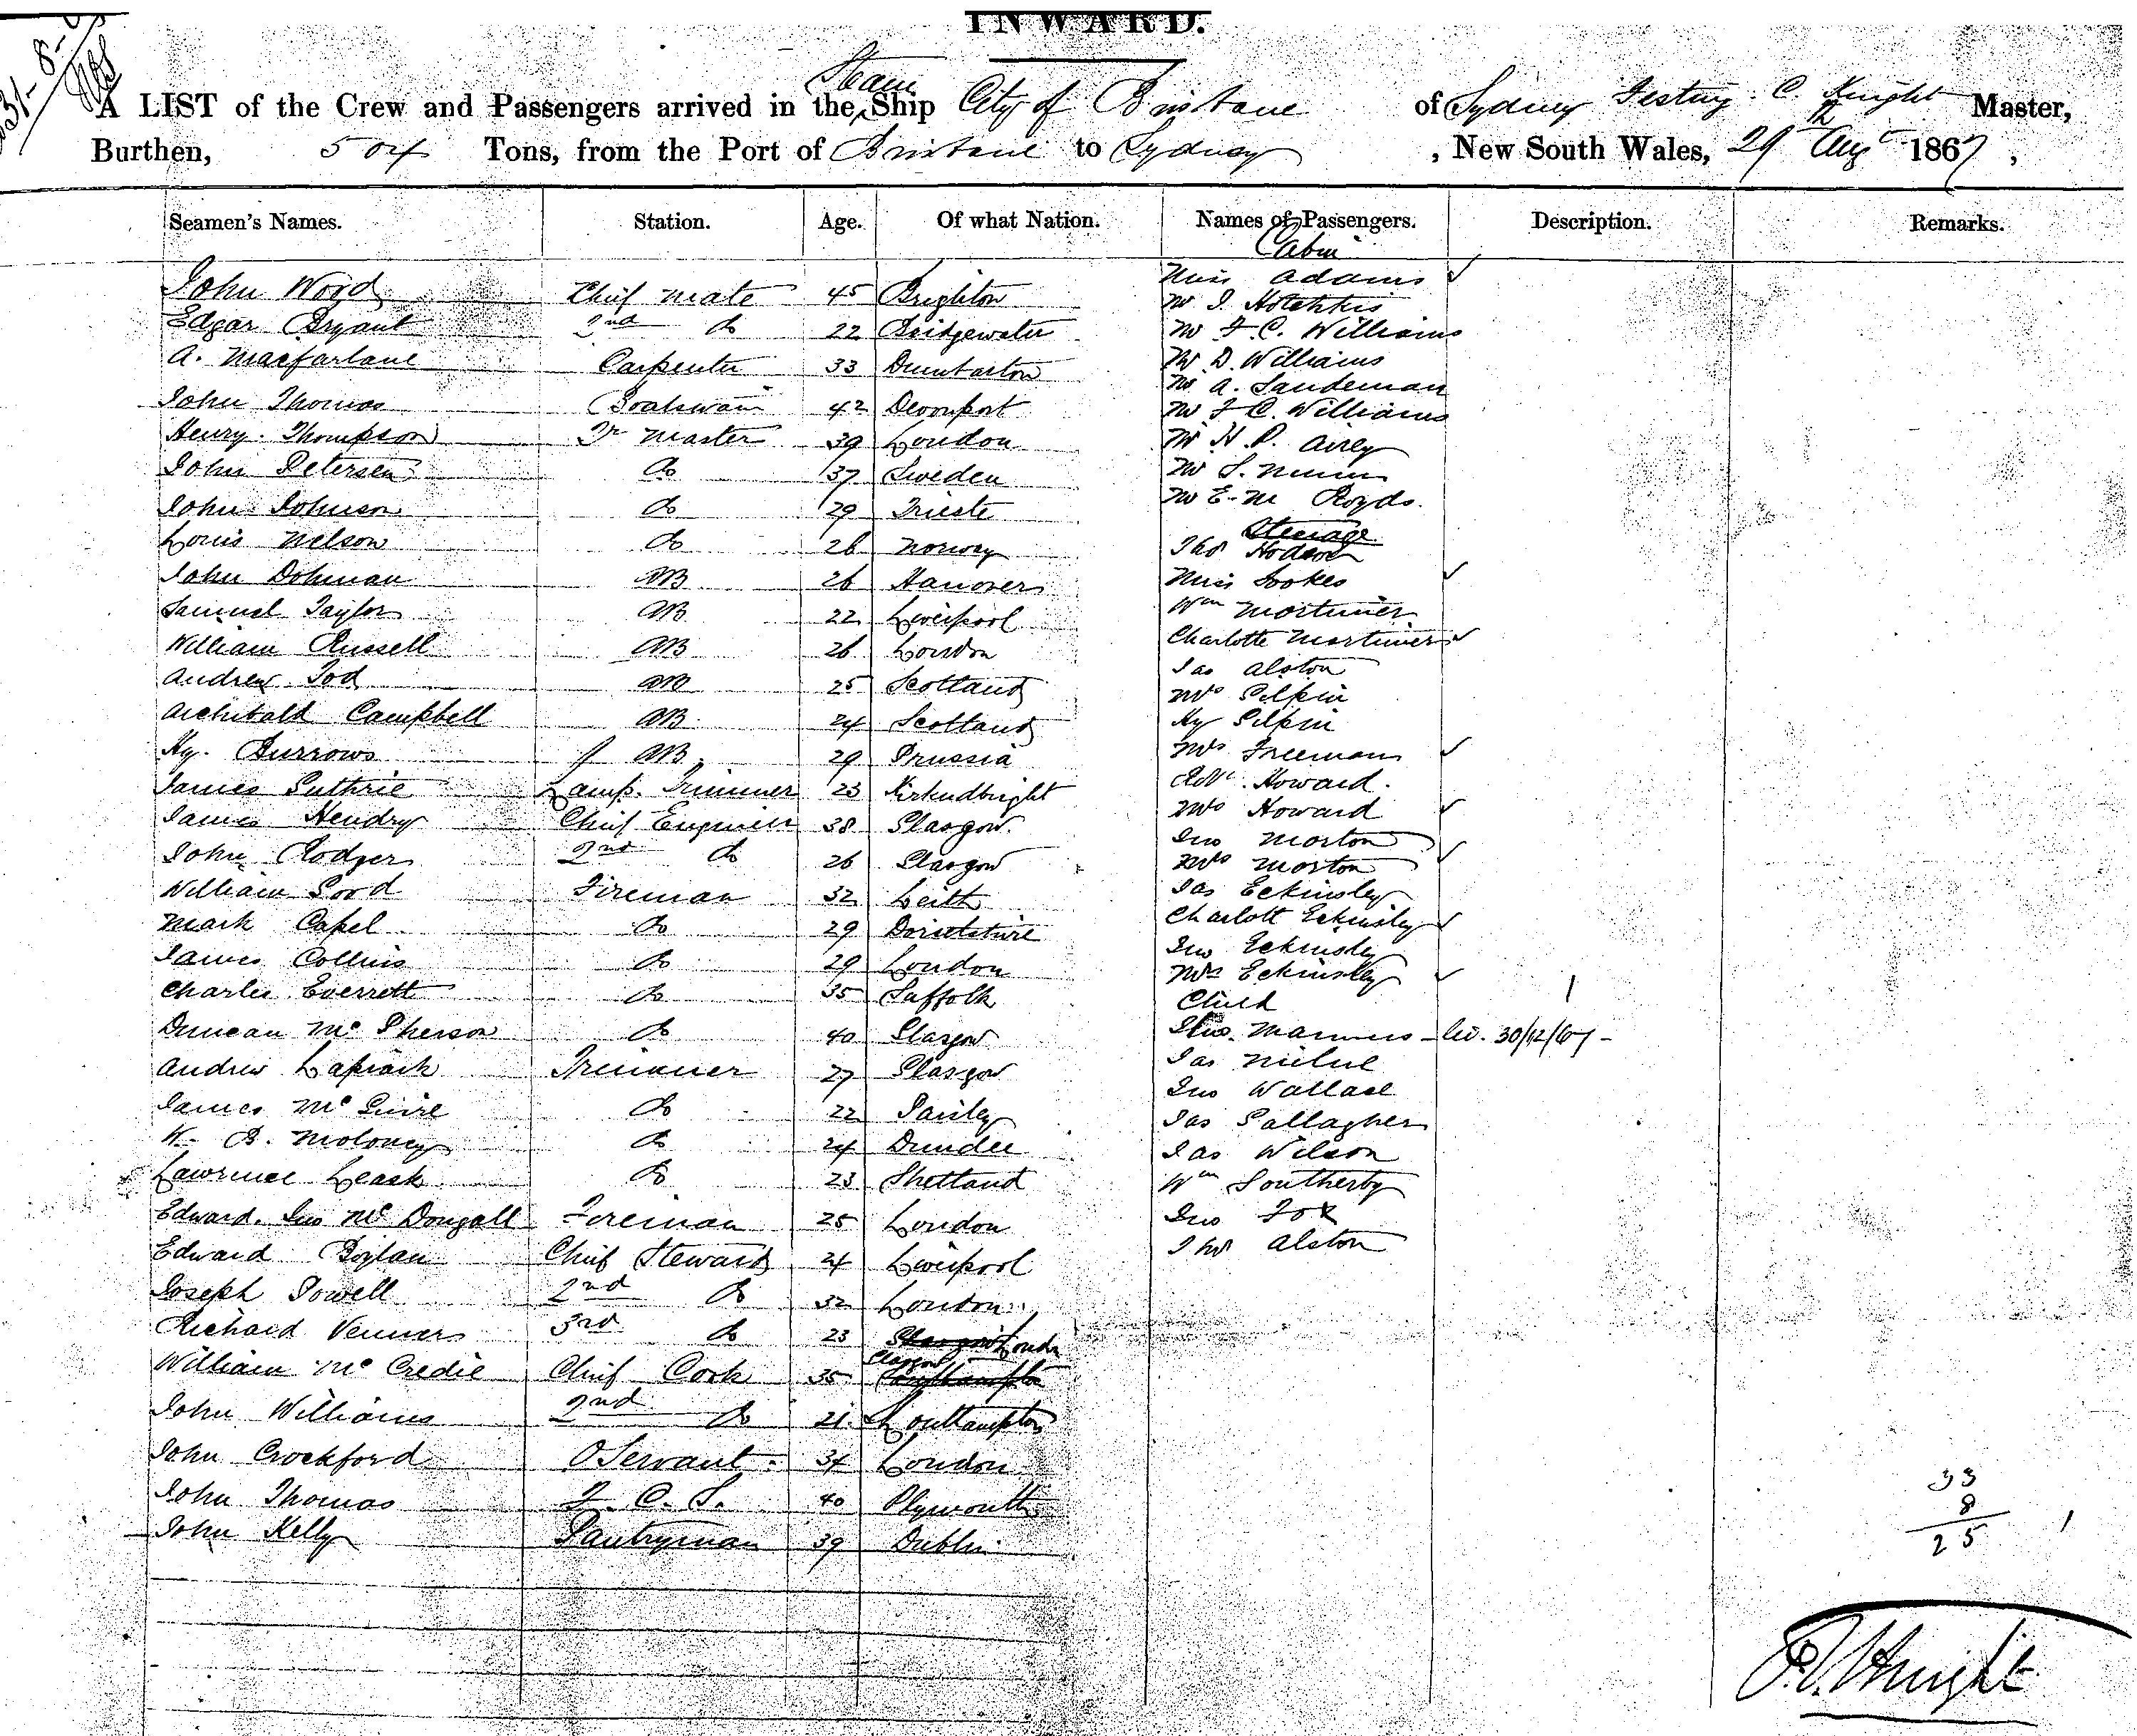 INWARD.
A LIST of the Crew and Passengers arrived in the Steam Ship City of Brisbane of Sydney C. Knight Master,
Burthen, 504 Tons, from the Port of Brisbane to Sydney , New South Wales, 29th Augt 1867 ,
Seamen's Names. Station. Age. Of what Nation. Names of Passengers. Description. Remarks.
Cabin
John Wood Chief Mate 45 Brighton Miss Adams ✓
Edgar Bryant 2nd do 22 Bridgewater Mr J. Hotchkis
Mr F C. Williams
A. Macfarlane Carpenter 33 Dumbarton Mr D. Williams
Mr A. Sandeman
John Thomas Boatswain 42 Devonport Mr F C. Williams
Henry Thompson Qr Master 39 London Mr H. P. Airey
John Petersen do 37 Sweden Mr S.
John Johnson do 29 Trieste Mr E. M Royds.
Steerage
Louis Nelson do 26 Norway Thos Hodson
John Dohman AB 26 Hanover Miss Sookes ✓
Samuel Taylor AB 22 Liverpool Wm Mortimer
William Russell AB 26 London Charlotte Mortimer ✓
Andrew Tod AB 25 Scotland Jas Alston
Mrs Pilkin
Archibald Campbell AB 24 Scotland Hy Pilkin
Hy. Burrows AB 29 Prussia Mrs Freeman ✓
James Guthrie Lamp. Trimmer 23 Kirkudbright Howard.
James Hendry Chief Engineer 38 Glasgow. Mrs Howard ✓
Jno Morton
John Rodger 2nd do 26 Glasgow Mrs Morton ✓
William Pord Fireman 32 Leith Jas Eckinsley
Mark Capel do 29 Dorsetshire Charlott Eckinsley ✓
Jno Eckinsley
James Collins do 29 London Mrs Eckinsley ✓
Charles Everrett do 35 Suffolk Child 1
Duncan McPherson do 40 Glasgow Manners - 30/12/67 -
Andrew Lapraik Trimmer 27 Glasgow Jas
Jno Wallace
James McGuire do 22 Paisley Jas Gallagher
W. B. Moloney do 24 Dundee Jas Wilson
Lawrence Leask do 23 Shetland Wm Southerby
Edward. Jno McDougall Fireman 25 London Jno Fox
Edward Boylan Chief Steward 24 Liverpool Thos Alston
Joseph Powell 2nd do 32 London
Richard Venners 3rd do 23 Glasgow London
William McCredie Chief Cook 35 Glasgow Southampton
John Williams 2nd do 21 Southampton
John Crockford O Servant 34 London
John Thomas F. C. S. 40 Plymouth
John Kelly Pantryman 39 Dublin
33
8
25 1
Knight